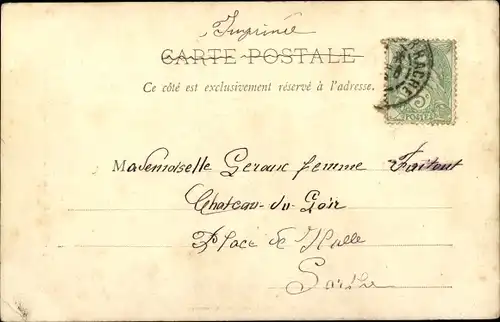 Imprimé
CARTE POSTALE
Ce côté est exclusivement réservé à l'adresse.
POSTES
Mademoiselle Geraux femme Faitout
Chateau-du-Loir
Place de Halle
Sarthe